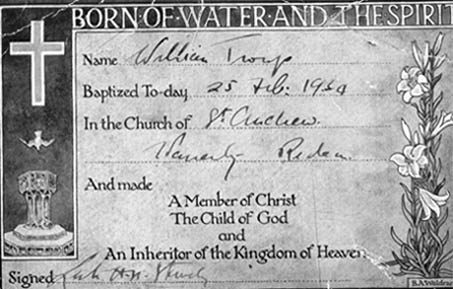 BORN·OF·WATER·AND·THE SPIRIT
Name William
Baptized To-day 25 Feb. 1950
In the Church of St Andrew
And made
A Member of Christ
The Child of God
and
An Inheritor of the Kingdom of Heaven
Signed